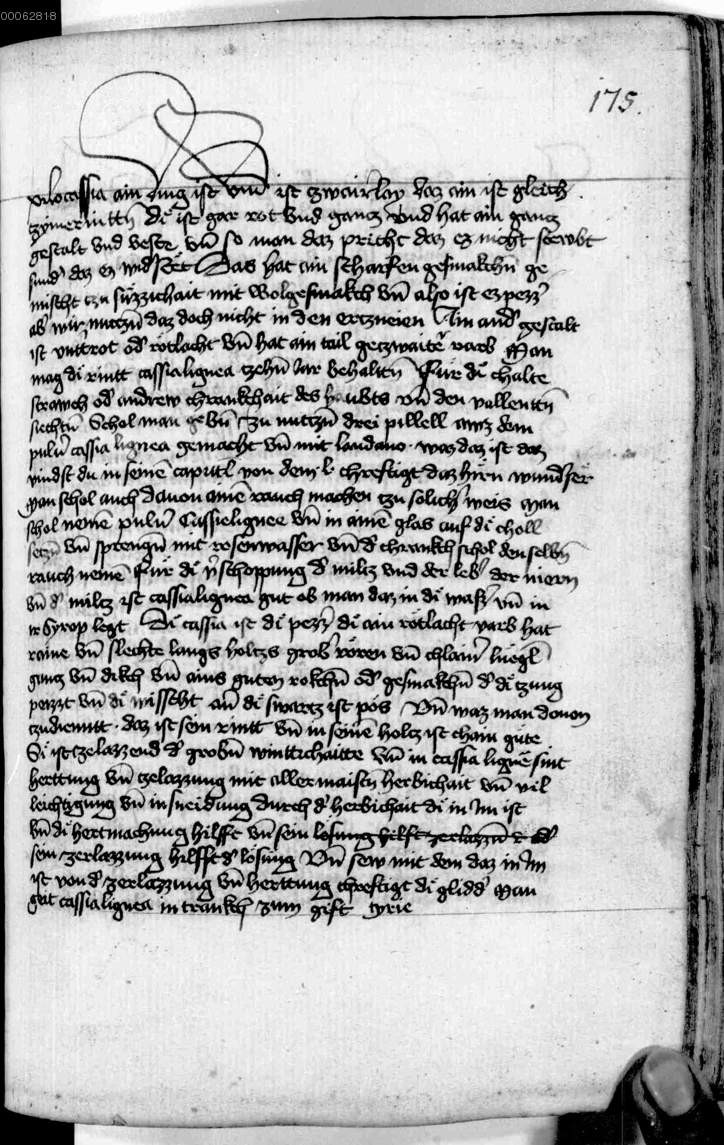 00062818
175.
xilocassia ain ding ist vnd ist czwairlay daz ain ist gleich
czimerrintn̄ di ist gar rot vnd gancz vnd hat ain gancz
gestalt vnd veste vn̄ so man daz pricht daz ez nicht stewbt
sund̾ daz ez Das hat ain scharfen gesmakchn̄ ge
mischt czu süzzichait mit wolgesmakch vn̄ also ist ez pezz̾
ab̾ wir nuczn̄ daz doch nicht in den erczneien Ain and̾ gestalt
ist vnttrot od̾ rotlocht vn̄ hat ain tail geczwait̾ varb Man
mag di rintt cassialignea czehn̄ Jar behaltn̄ Für di chalte
od̾ andrew chrankchait des haubts vn̄ den vallenttn̄
siechtn̄ Schol man gebn̄ zu nuczn̄ drei pillell awz dem
pulu̾ cassia lignea gemacht vn̄ mit laudano. waz daz ist daz
vindst du in seinē capitl von dem .l. chreftigt daz hirn
Man schol auch dauon ainē rauch machen czu solich̾ weis Man
schol nemē pulu̾ Cassielignee vn̄ in ainē glas auf di choll
seczn̄ vn̄ sprengn̄ mit rosenwasser vn̄ d̾ chrankch schol den selbn̄
rauch nemē Für di v̾schoppung d̾ milcz vnd der leb̾ der niern
vn̄ d̾ milcz ist cassialignea gut ob man daz in di wass̾ vn̄ in
ir Syrop legt Di cassia ist di pezz̾ di ain rötlacht varb hat
raine vn̄ slechte langs holtzs grob̾ rören vn̄ chlain̾ luegl
gancz vn̄ dikch vn̄ ains guten rokchn̄ od̾ gesmakchn̄ d̾ di czung
peizzt vn̄ di mischt an̄ di swarcz ist pös Vn̄ waz man douon
czudientt. daz ist sein rintt vn̄ in seinē holcz ist chain güte
Si ist czelazzend d̾ grobn̄ winttichaitte vn̄ in cassia lignē sint
herttung vn̄ czelazzung mit allermaistn̄ herbichait vn̄ vil
leichtigung vn̄ in sneidung durch d̾ herbichait di in Im ist
vn̄ di hertmachung hilfft vn̄ sein lösung hilft zerlazzn̄
sein zerlazzung hilfft d̾ lösung Vn̄ sew mit dem daz in Im
ist von d̾ zerlazzung vn̄ herttung chreftigt di glidd̾ Man
geit cassialignea in trankch zum gift tyrie